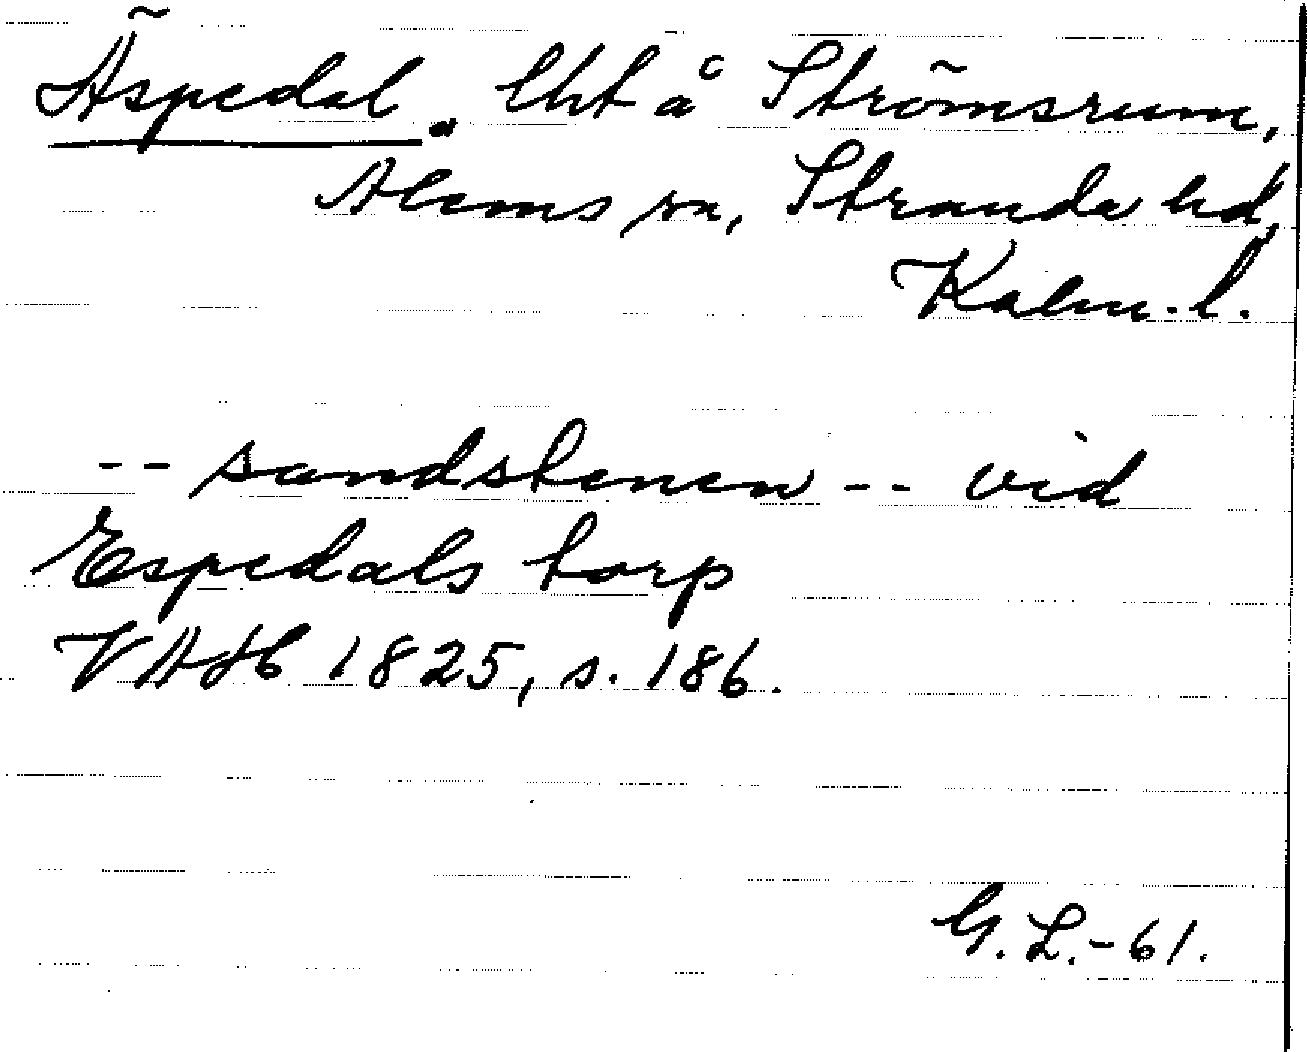 Äspedal. lht å Strömsrum,
Alems sn, Stranda hd,
Kalm. l.
-- sandstenen -- vid
Espedals torp
VAH 1825, s. 186.
G. L. - 61.